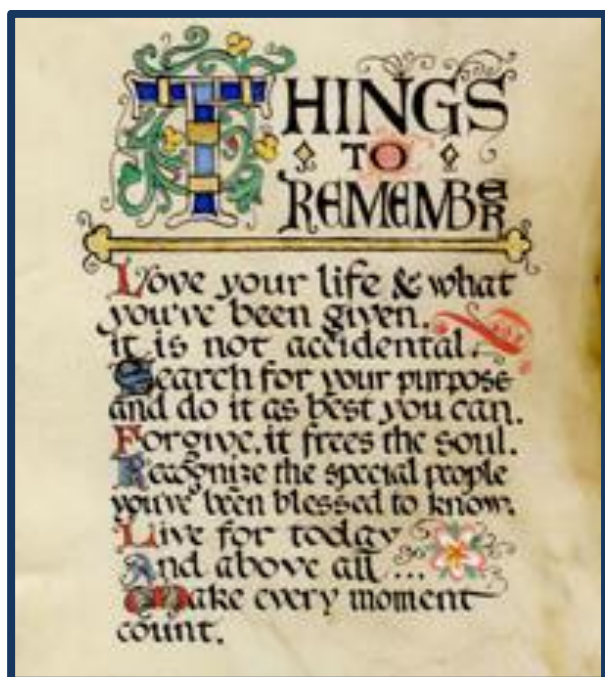 THINGS
TO
REMEMBER
Love your life & what
you've been given.
it is not accidental.
Search for your purpose
and do it as best you can.
Forgive. it frees the soul.
Recognize the special people
you've been blessed to know.
Live for today
And above all ...
Make every moment
count.